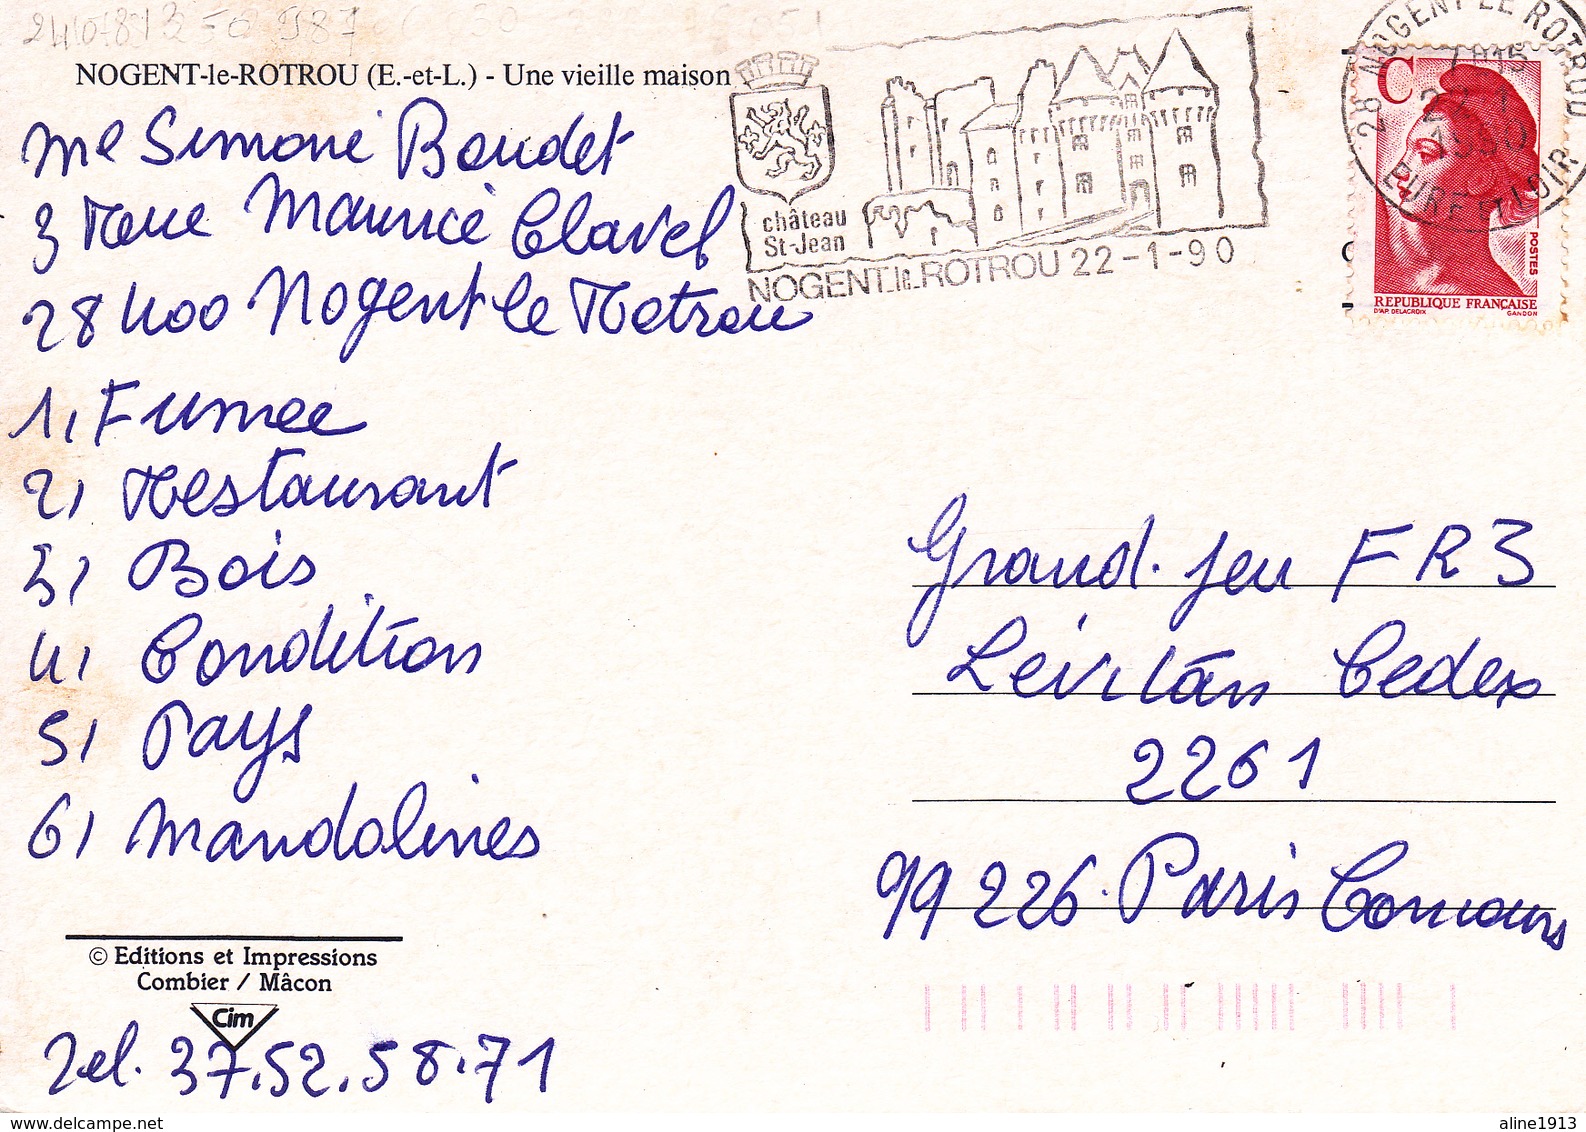 NOGENT-le-ROTROU (E.-et-L.) - Une vieille maison
Me Simone Boudet
3 Rue Maurice Clavel
28400 Nogent le Rotrou
1, Fumee
2, Restaurant
3, Bois
4, Condition
5, Pays
6, Mandolines
© Editions et Impressions
Combier / Mâcon
Cim
Tel. 37.52.58.71
château
St-Jean
NOGENT-le-ROTROU 22-1-90
28 NOGENT LE ROTROU
22-1
1990
EURE ET LOIR
C
POSTES
REPUBLIQUE FRANÇAISE
D'AP. DELACROIX GANDON
Grand. Jeu FR3
Levitan Cedex
2261
99226. Paris Concours
www.delcampe.net
aline1913